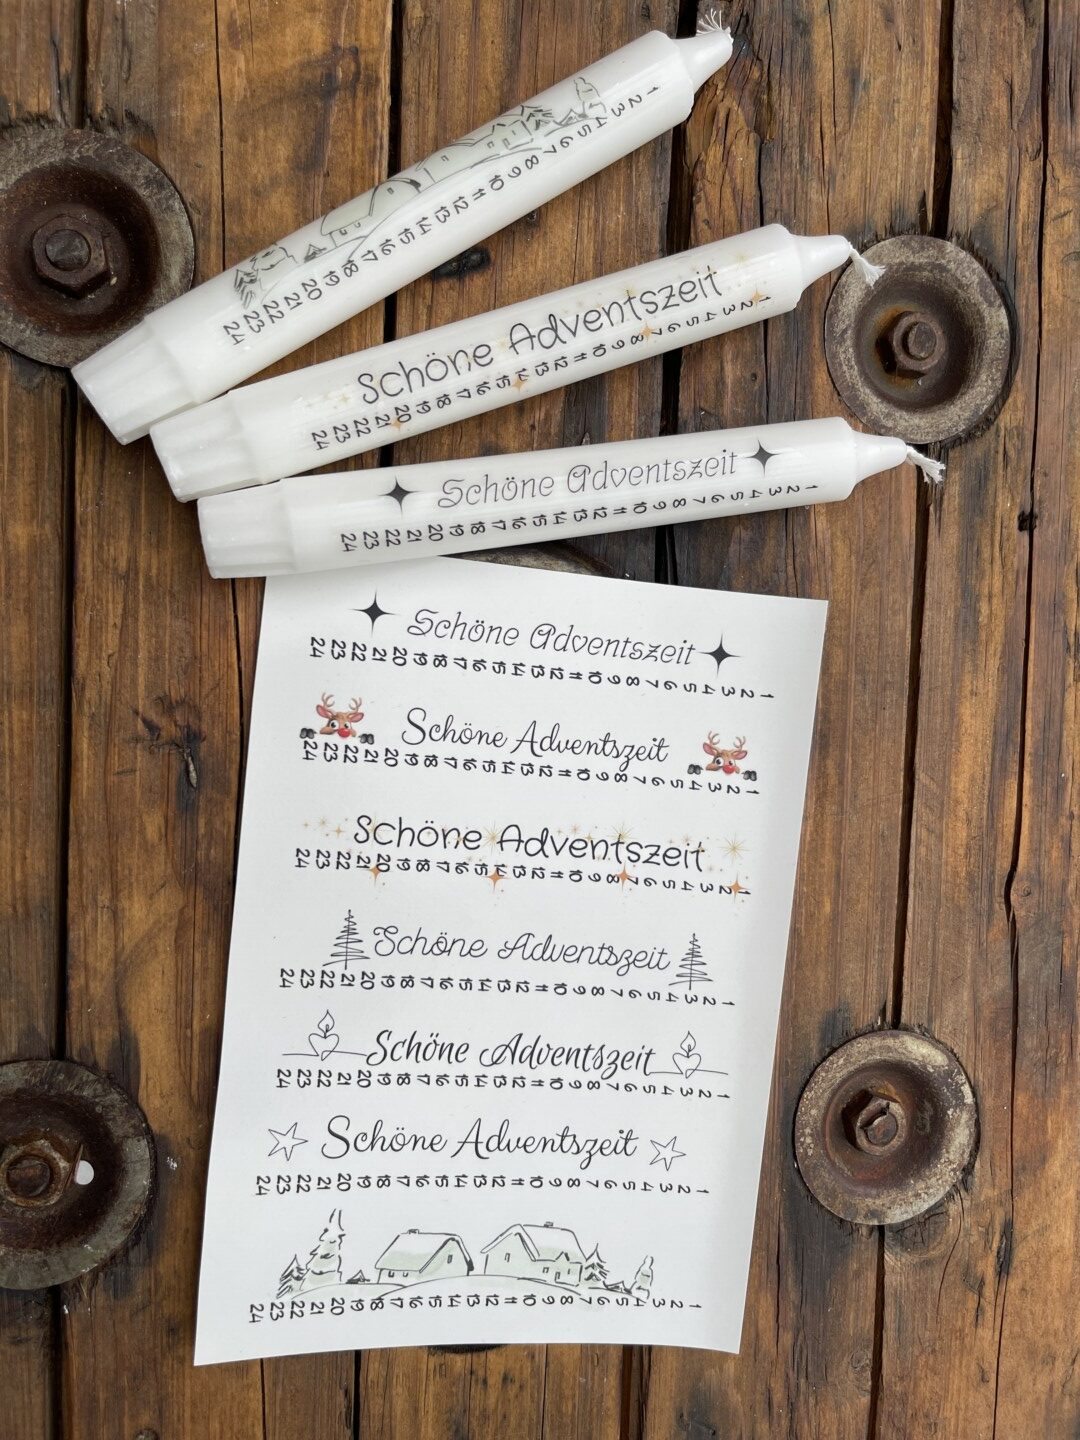 24 23 22 21 20 19 18 17 16 15 14 13 12 11 10 9 8 7 6 5 4 3 2 1
Schöne Adventszeit
24 23 22 21 20 19 18 17 16 15 14 13 12 11 10 9 8 7 6 5 4 3 2 1
Schöne Adventszeit
24 23 22 21 20 19 18 17 16 15 14 13 12 11 10 9 8 7 6 5 4 3 2 1
Schöne Adventszeit
24 23 22 21 20 19 18 17 16 15 14 13 12 11 10 9 8 7 6 5 4 3 2 1
Schöne Adventszeit
24 23 22 21 20 19 18 17 16 15 14 13 12 11 10 9 8 7 6 5 4 3 2 1
Schöne Adventszeit
24 23 22 21 20 19 18 17 16 15 14 13 12 11 10 9 8 7 6 5 4 3 2 1
Schöne Adventszeit
24 23 22 21 20 19 18 17 16 15 14 13 12 11 10 9 8 7 6 5 4 3 2 1
Schöne Adventszeit
24 23 22 21 20 19 18 17 16 15 14 13 12 11 10 9 8 7 6 5 4 3 2 1
Schöne Adventszeit
24 23 22 21 20 19 18 17 16 15 14 13 12 11 10 9 8 7 6 5 4 3 2 1
24 23 22 21 20 19 18 17 16 15 14 13 12 11 10 9 8 7 6 5 4 3 2 1